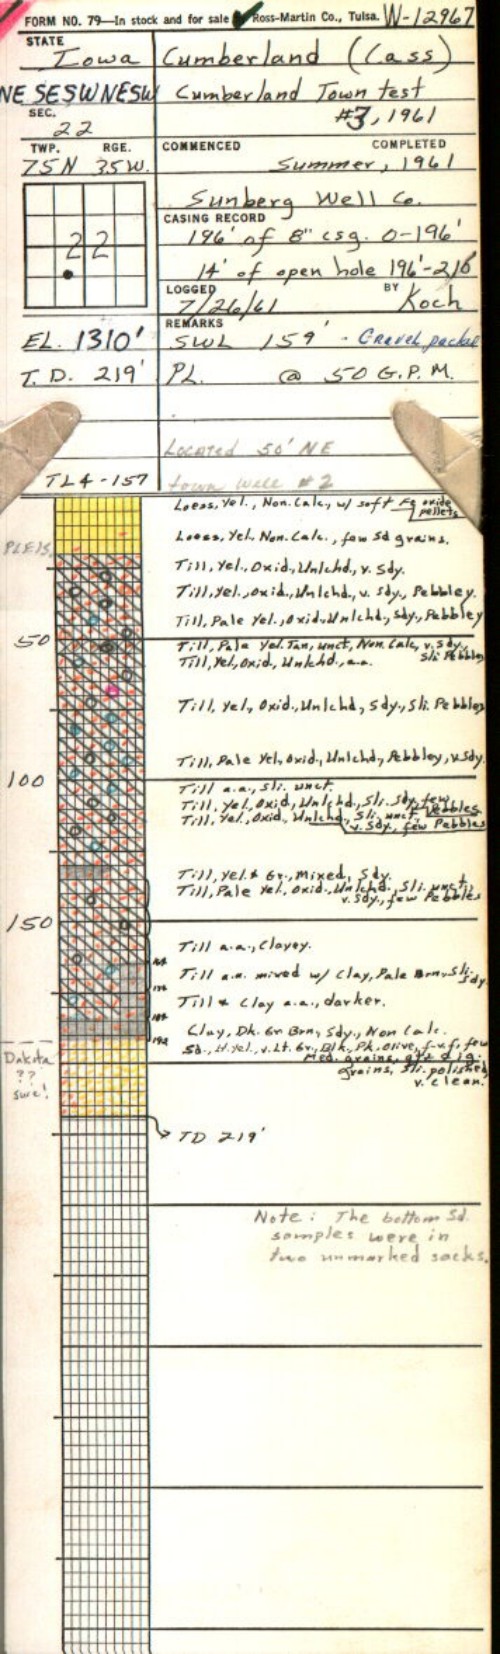 FORM NO. 79—In stock and for sale Ross-Martin Co., Tulsa. W-12967
STATE
Iowa Cumberland (Cass)
NE SESWNESW Cumberland Town test
SEC. #3, 1961
22
TWP. RGE. COMMENCED COMPLETED
75N 35W. Summer, 1961
Sunberg Well Co.
CASING RECORD
22 196' of 8" csg. 0-196'
14' of open hole 196'-210'
LOGGED BY
7/26/61 Koch
REMARKS
EL. 1310' SWL 159' - Gravel packed
T.D. 219' PL. @ 50 G.P.M.
Located 50' NE
TL4-157 town well #2
Loess, Yel., Non.Calc, w/ soft Fe oxide
pellets
PLEIS. Loess, Yel, Non.Calc., few Sd grains.
Till, Yel., Oxid, Unlchd., v. Sdy.
Till, Yel., oxid., Unlchd., v. Sdy., Pebbley.
Till, Pale Yel., Oxid., Unlchd, Sdy., Pebbley
50 Till, Pale Yel. Tan, unct, Non.Calc, v. Sdy.,
Sli Pebbley
Till, Yel, Oxid, Unlchd., a.a.
Till, Yel, Oxid., Unlchd, Sdy., Sli. Pebbley
Till, Pale Yel, Oxid., Unlchd, Pebbley, v. Sdy.
100 Till a.a., Sli. unct.
Till, Yel, Oxid, Unlchd., Sli. Sdy, few
Pebbles
Till, Yel., Oxid., Unlchd., Sli. unct,
v. Sdy., few Pebbles
Till, Yel. & Gr., Mixed, Sdy.
Till, Pale Yel, Oxid., Unlchd., Sli. unct,
v. Sdy., few Pebbles
150
Till a.a., Clayey.
Till a.a. mixed w/ Clay, Pale Brn, Sli.
Sdy
Till & Clay a.a., darker.
Clay, Dk. Gr Brn, Sdy, Non Calc.
Dakota Sd., Lt. Yel., v. Lt. Gr., Blk, Pk, olive, f-v.f, few
Med. grains, qtz & ig.
?? grains, Sli. polished,
sure! v. clean.
TD 219'
Note: The bottom Sd.
samples were in
two unmarked sacks.